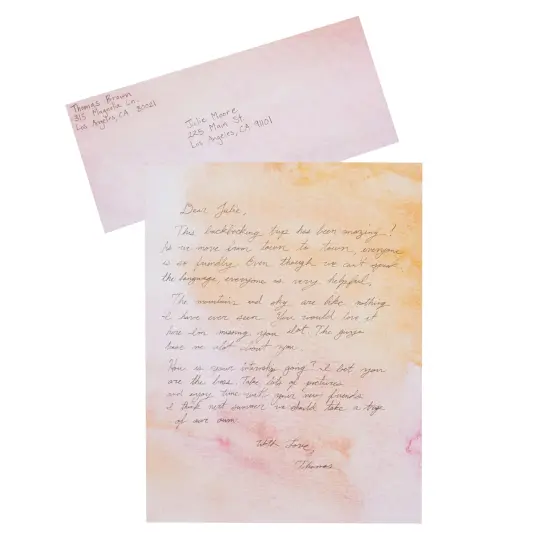 Thomas Brown
315 Magnolia Ln.
Los Angeles, CA
Julie Moore
225 Main St.
Los Angeles, CA 91101
Dear Julie,
This backpacking trip has been amazing!
As we move from town to town, everyone
is so friendly. Even though we can't speak
the language, everyone is very helpful.
The mountains and sky are like nothing
I have ever seen. You would love it
here. I'm missing you alot. The guys
hear me alot about you.
How is your internship going? I bet you
are the boss. Take lots of pictures
and enjoy time with your new friends.
I think next summer we should take a trip
of our own.
With Love,
Thomas